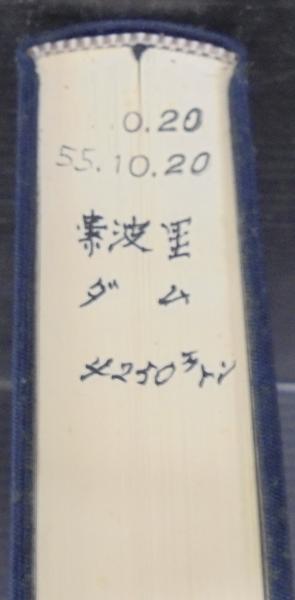 0.20
55.10.20
素波里
ダム
4250万トン